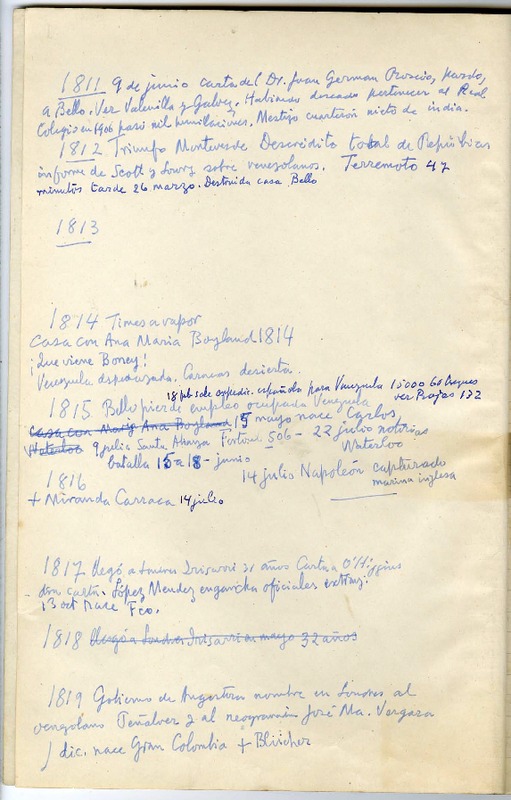 1811 9 de junio carta del Dr. Juan German Roscio, pardo,
a Bello. Ver Valenilla y Galvez. Habiendo deseado pertenecer al Real
Colegio en 1906 pasó mil humillaciones. Mestizo cuarterón nieto de india.
1812 Triunfo Monteverde Descrédito total de Repúblicas
informe de Scott y Lowry sobre venezolanos. Terremoto 4 y 7
minutos tarde 26 marzo. Destruida casa Bello
1813
1814 Times a vapor
Casa con Ana Maria Boyland 1814
¡Que viene Boney!
Venezuela despedazada. Caracas desierta.
18 feb sale expedic. española para Venezuela 15000 60 buques
1815 Bello pierde empleo ocupada Venezuela ver Rojas 132
Casa con Mary Ana Boyland 15 mayo nace Carlos
Waterloo 9 julio Santa Alianza 506 - 22 julio noticias
Waterloo
batalla 15 a 18 - junio
1816 14 julio Napoleón capturado
marina inglesa
+ Miranda Carraca 14 julio
1817 llegó a Londres Irisarri 31 años Carta a O'Higgins
dra carta. López Mendez engancha oficiales extranj.
13 oct nace Fco.
1818 llegó a Londres Irisarri en mayo 32 años
1819 Gobierno de Angostura nombra en Londres al
venezolano Peñalver y al neogranadino José Ma. Vergara
dic. nace Gran Colombia + Blücher